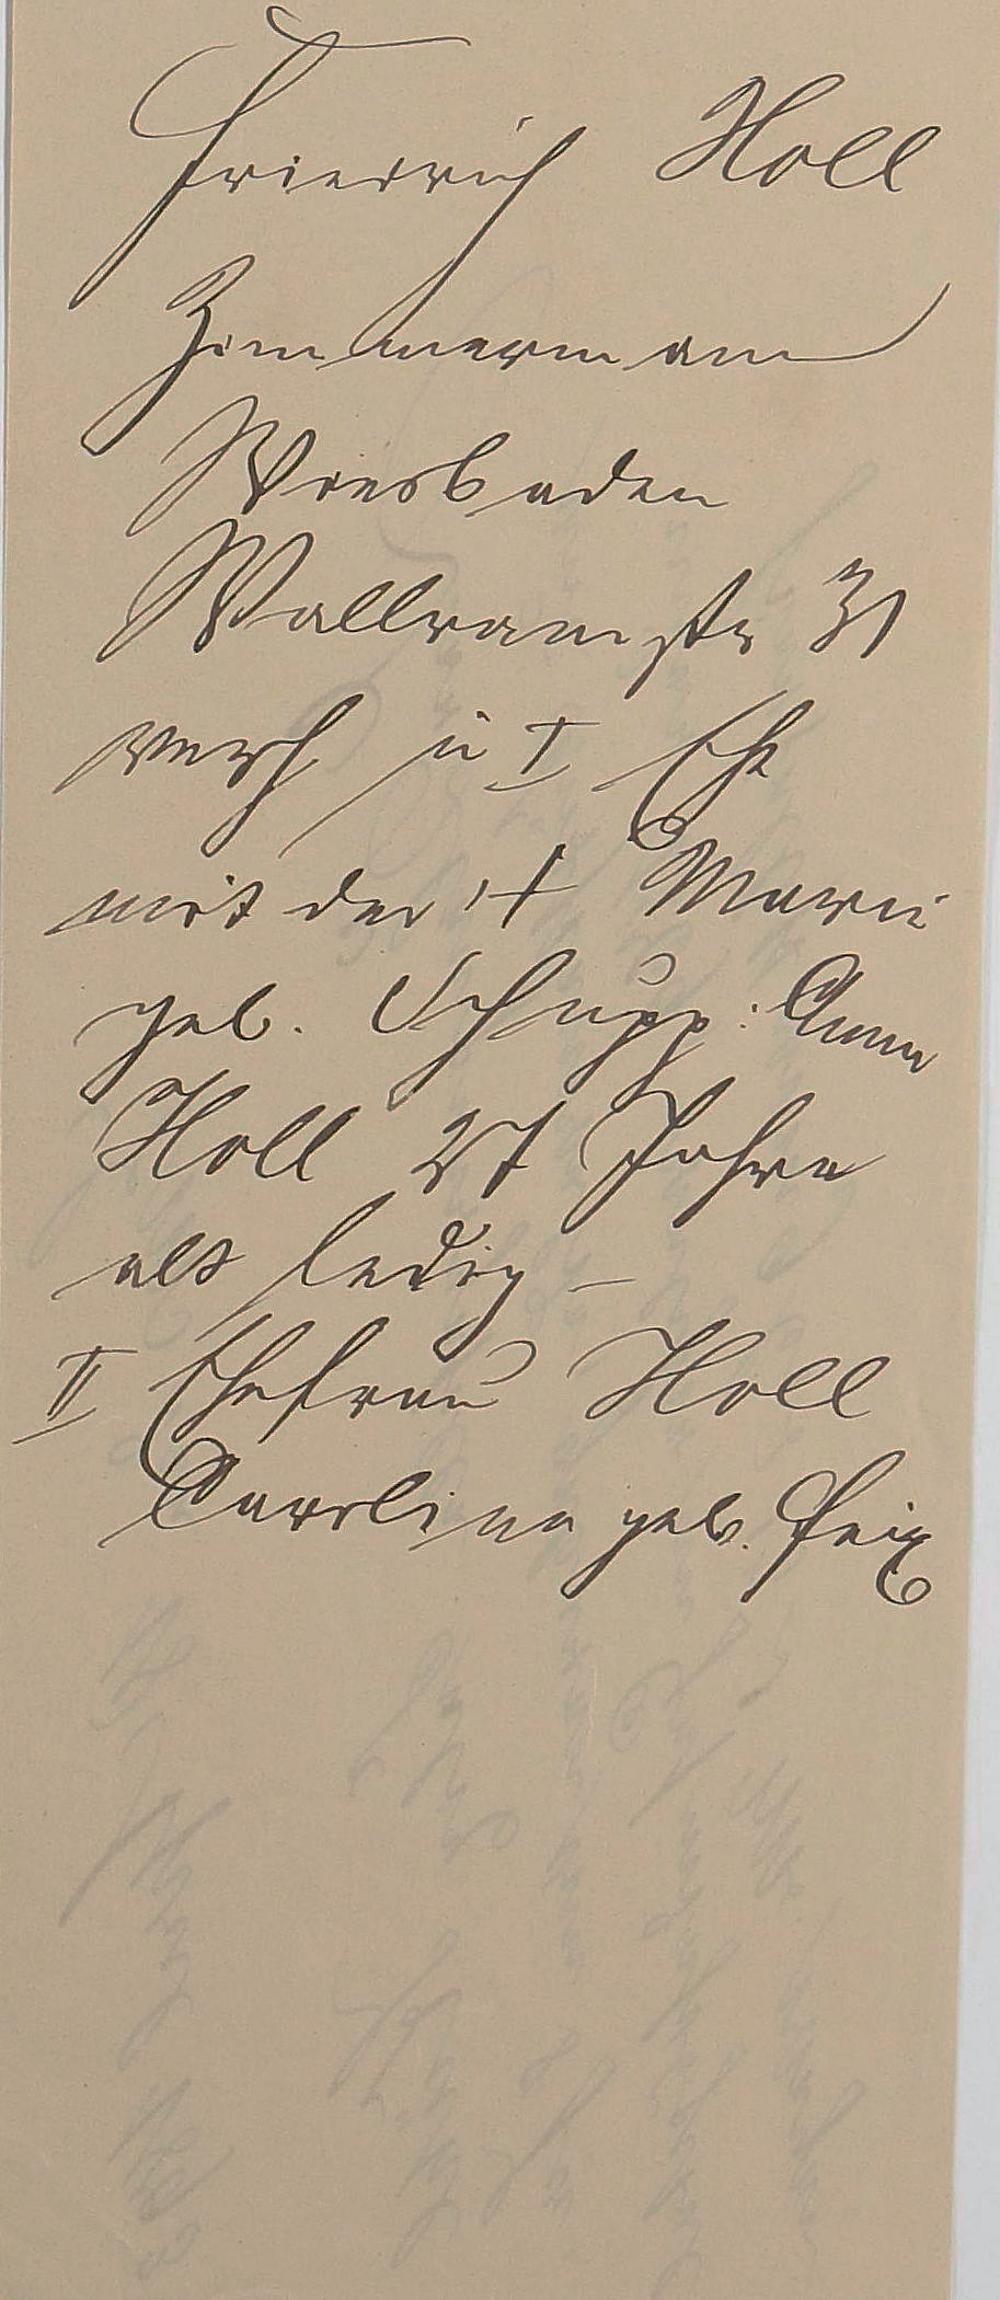 Friedrich Holl
Zimmermann
Wiesbaden
Wallramstr 31
verh in I Ehe
mit der † Marie
geb. Schupp: Anna
Holl 27 Jahre
alt ledig –
II Ehefrau Holl
Caroline geb.